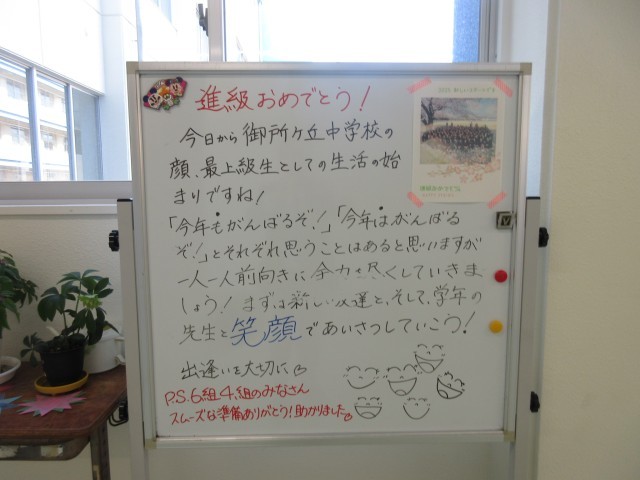 進級おめでとう！
今日から御所ヶ丘中学校の
顔、最上級生としての生活の始
まりですね！
「今年もがんばるぞ！」「今年はがんばる
ぞ！」とそれぞれ思うことはあると思いますが
一人一人前向きに全力を尽くしていきま
しょう！まずは新しい友達と、そして、学年の
先生と笑顔であいさつしていこう！
出逢いを大切に
P.S.6組4組のみなさん
スムーズな準備ありがとう！助かりました